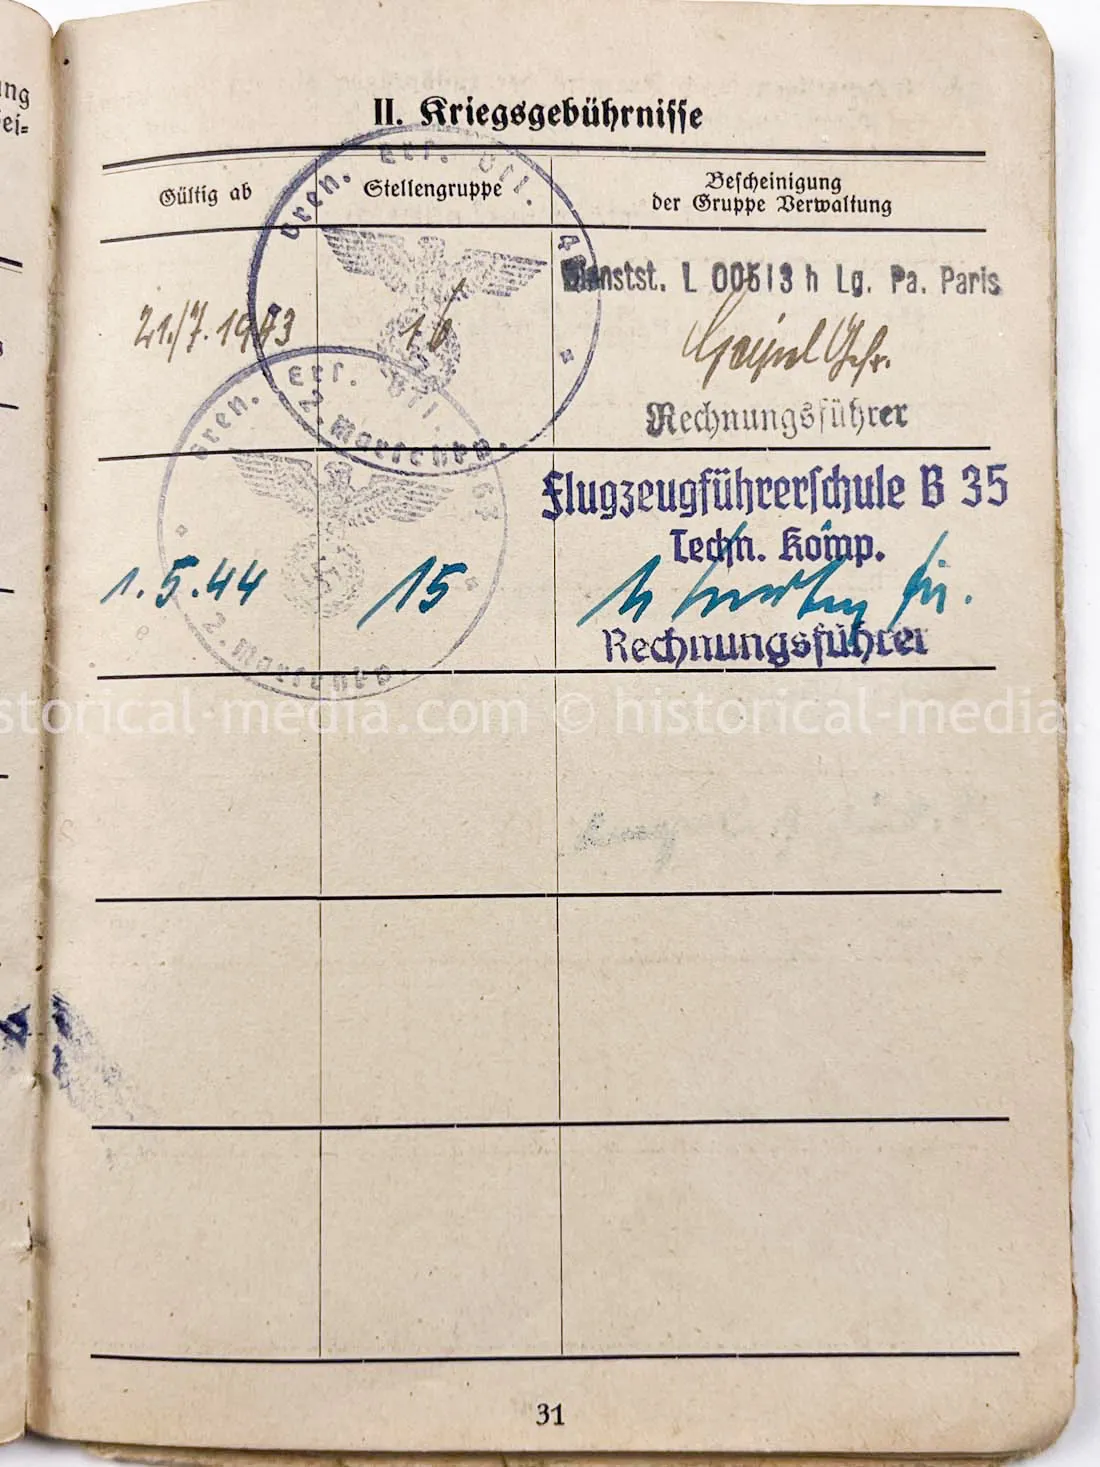 ung
ei-
II. Kriegsgebührnisse
Gültig ab
Stellengruppe
Bescheinigung
der Gruppe Verwaltung
Gren. Ers. Btl.
2. Marschkp.
21./7. 1943
16
Dienstst. L 00513 h Lg. Pa. Paris
Rechnungsführer
Gren. Ers. Btl.
2. Marschkp.
1. 5. 44
15
Flugzeugführerschule B 35
Techn. Komp.
Rechnungsführer
historical-media.com © historical-media.
31